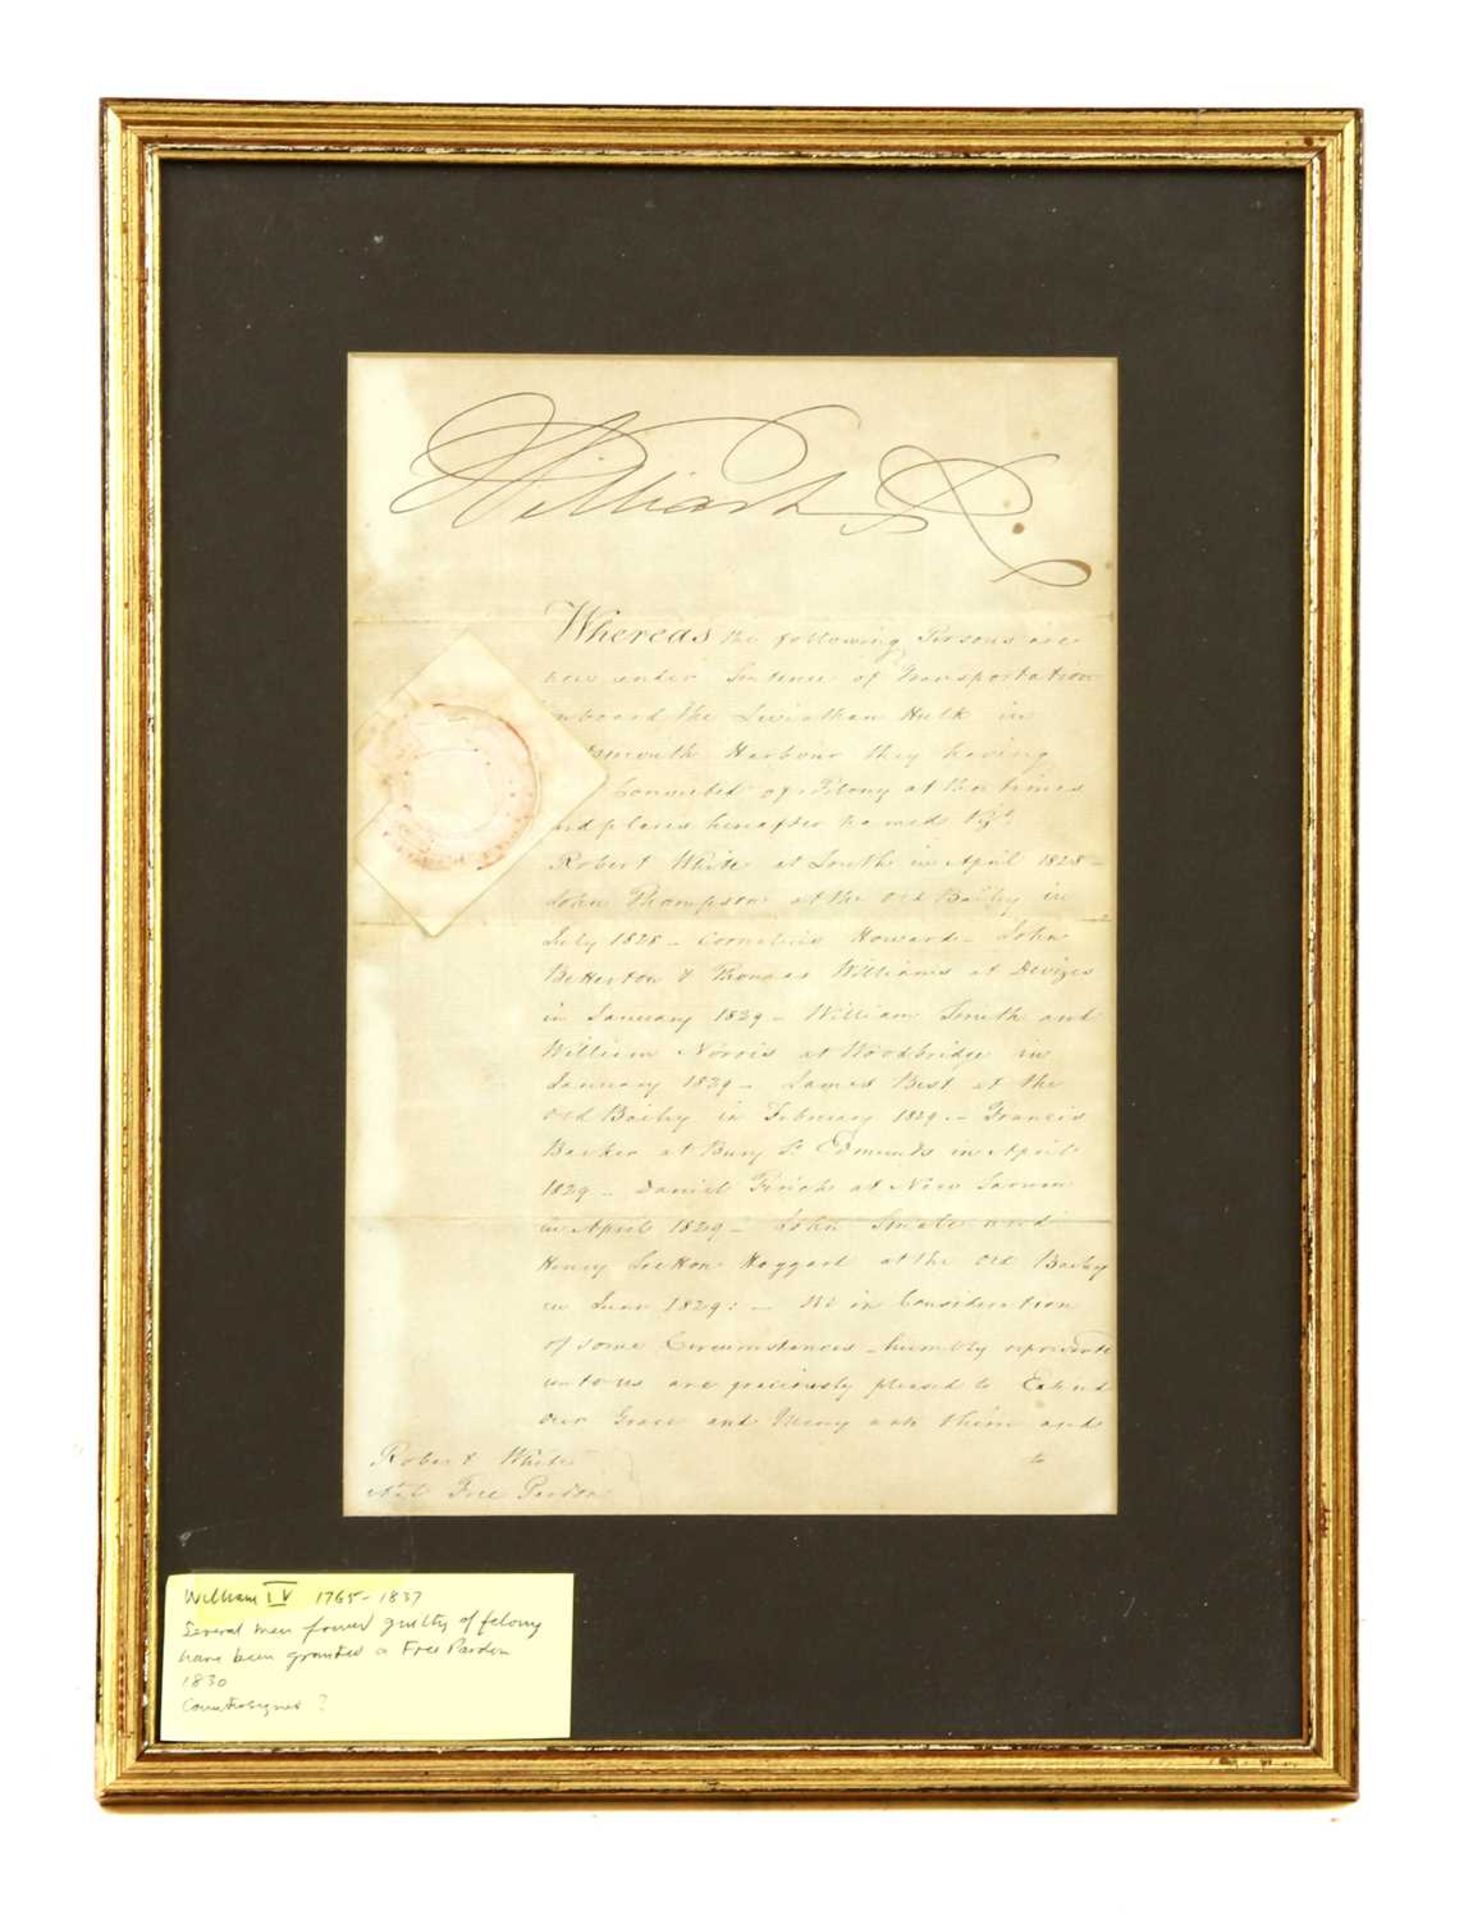 William R.
Whereas the following Persons are
now under Sentence of Transportation
onboard the Leviathan Hulk in
tsmouth Harbour they having
Convicted of Felony at the times
and places hereafter named Vizt
Robert White at Louth in April 1828 –
John Thompson at the Old Bailey in
July 1828 – Cornelius Howard – John
Betterton & Thomas Williams at Devizes
in January 1829 – William Smith and
William Norris at Woodbridge in
January 1829 – James Best at the
Old Bailey in February 1829 – Francis
Barker at Bury St Edmunds in April
1829 – Daniel Finch at New Sarum
in April 1829 – John Smale and
Henry Haggard at the Old Bailey
in June 1829: – We in Consideration
of some Circumstances humbly represented
unto us are graciously pleased to Extend
our Grace and Mercy unto them and
to
Robert White
Free Pardon
William IV 1765–1837
Several men found guilty of felony
have been granted a Free Pardon
1830
Countersigned ?